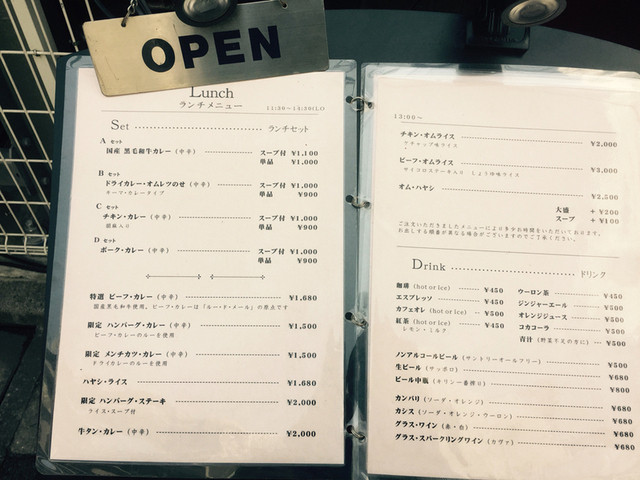 OPEN
Lunch
ランチメニュー 11:30~14:30(LO
Set ランチセット
A セット
国産 黒毛和牛カレー（中辛） スープ付 ¥1,100
単品 ¥1,000
B セット
ドライカレー・オムレツのせ（中辛） スープ付 ¥1,000
キーマ・カレータイプ 単品 ¥900
C セット
チキン・カレー（中辛） スープ付 ¥1,000
胡麻入り 単品 ¥900
D セット
ポーク・カレー（中辛） スープ付 ¥1,000
単品 ¥900
特選 ビーフ・カレー（中辛） ¥1,680
国産黒毛和牛使用。ビーフ・カレーは「ルー・ド・メール」の原点です
限定 ハンバーグ・カレー（中辛） ¥1,500
ビーフ・カレーのルーを使用
限定 メンチカツ・カレー（中辛） ¥1,500
ドライカレーのルーを使用
ハヤシ・ライス ¥1,680
限定 ハンバーグ・ステーキ ¥2,000
ライス・スープ付
牛タン・カレー（中辛） ¥2,000
13:00～
チキン・オムライス ¥2,000
ケチャップ味ライス
ビーフ・オムライス ¥3,000
サイコロステーキ入り しょうゆ味ライス
オム・ハヤシ ¥2,500
大盛 + ¥200
スープ + ¥100
ご注文いただきましたメニューにより多少お時間をいただいております。
お出しする順番が異なる場合がございますのでご了承ください。
Drink ドリンク
珈琲 (hot or ice) ¥450
エスプレッソ ¥450
カフェオレ (hot or ice) ¥500
紅茶 (hot or ice) ¥450
レモン・ミルク
ウーロン茶 ¥450
ジンジャーエール ¥500
オレンジジュース ¥500
コカコーラ ¥500
青汁（野菜不足の方に） ¥500
ノンアルコールビール（サントリーオールフリー） ¥500
生ビール（サッポロ） ¥680
ビール中瓶（キリン一番搾り） ¥800
カンパリ（ソーダ・オレンジ） ¥680
カシス（ソーダ・オレンジ・ウーロン） ¥680
グラス・ワイン（赤・白） ¥680
グラス・スパークリングワイン（カヴァ） ¥680